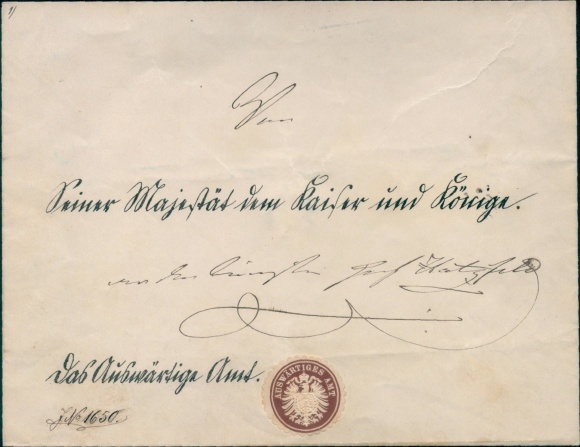 1/
Von
Seiner Majestät dem Kaiser und Könige.
an den Graf Hatzfeldt
Das Auswärtige Amt.
AUSWÄRTIGES AMT
J. № 1650.